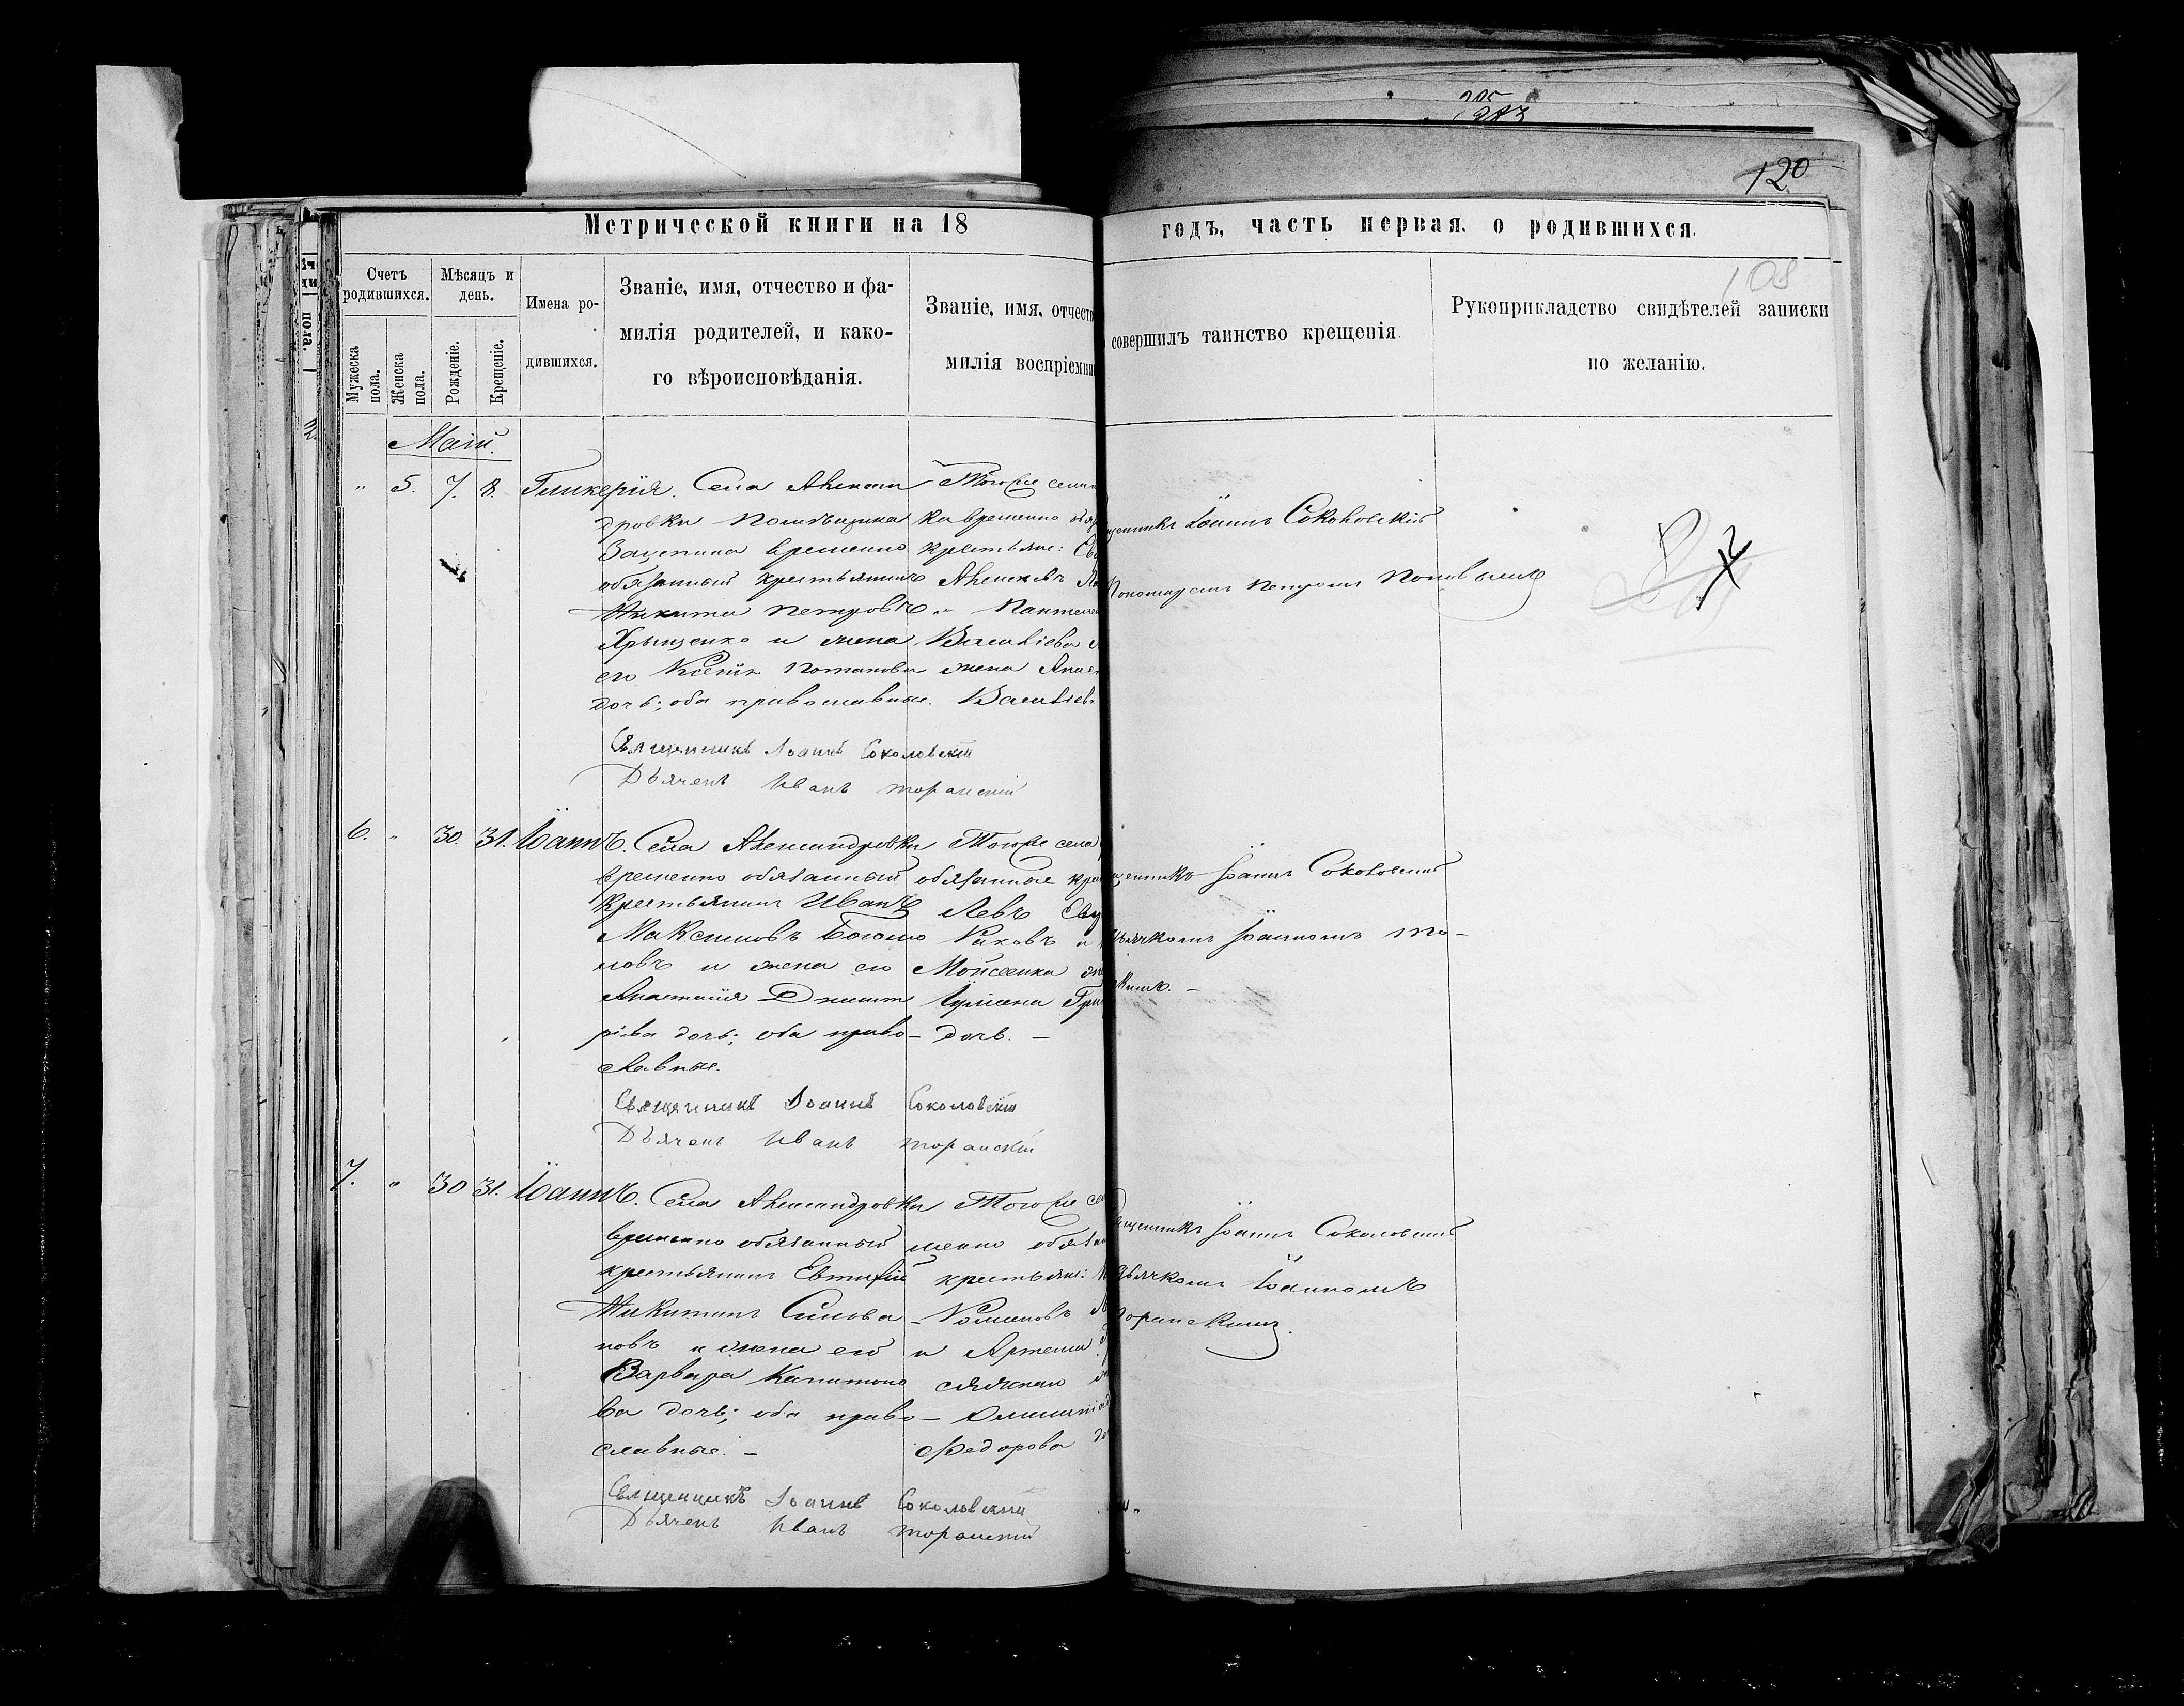 285
287
120
Метрической книги на 18 годъ, часть первая, о родившихся.
108
Счетъ родившихся.
Мужеска пола.
Женска пола.
Мѣсяцъ и день.
Рожденіе.
Крещеніе.
Имена родившихся.
Званіе, имя, отчество и фа-
милія родителей, и како-
го вѣроисповѣданія.
Званіе, имя, отчеств
милія воспріемни
совершилъ таинство крещенія.
Рукоприкладство свидѣтелей записки
по желанію.
Маій.
" 5. 7. 8. Гликерія.
Села Алексан
дровки помѣщика
Зацепина временно
обязанный крестьянинъ
Никита Петровъ
Хрыщенко и жена
его Ксенія Потапова
дочь; оба православные.
Тогоже села
ка временно обяз
крестьяне:
Алексѣй
и Пантеле
Василіева
жена Анас
Василіев
Священникъ Іоаннъ Соколовскій
Дьячекъ Иванъ Торанскій
щенникъ Іоаннъ Соколовскій
Пономаремъ Петромъ Поповымъ
6. " 30. 31. Іоаннъ.
Села Александровки
временно обязанный
крестьянинъ Иванъ
Максимовъ Богомо
ловъ и жена его
Анастасія Димит
ріева дочь; оба право-
славные.
Тогоже села
обязанные кре
Левъ
Раковъ и
Моисеенка
Іуліана Гри
дочь. —
Священникъ Іоаннъ Соколовскій
Дьячекъ Иванъ Торанскій
щенникъ Іоаннъ Соколовскій
дьячкомъ Іоанномъ То-
скимъ. —
7. " 30 31. Іоаннъ.
Села Александровки
временно обязанный
крестьянинъ Евтихій
Никитинъ Сидова-
новъ и жена его
Варвара Капитоно
ва дочь; оба право-
славные. —
Тогоже се
менно обяза
крестьяне:
Романовъ
и Артема
Олимпіад
Федорова до
Священникъ Іоаннъ Соколовскій
Дьячекъ Иванъ Торанскій
щенникъ Іоаннъ Соколовскій
дьячкомъ Іоанномъ
Торанскимъ.